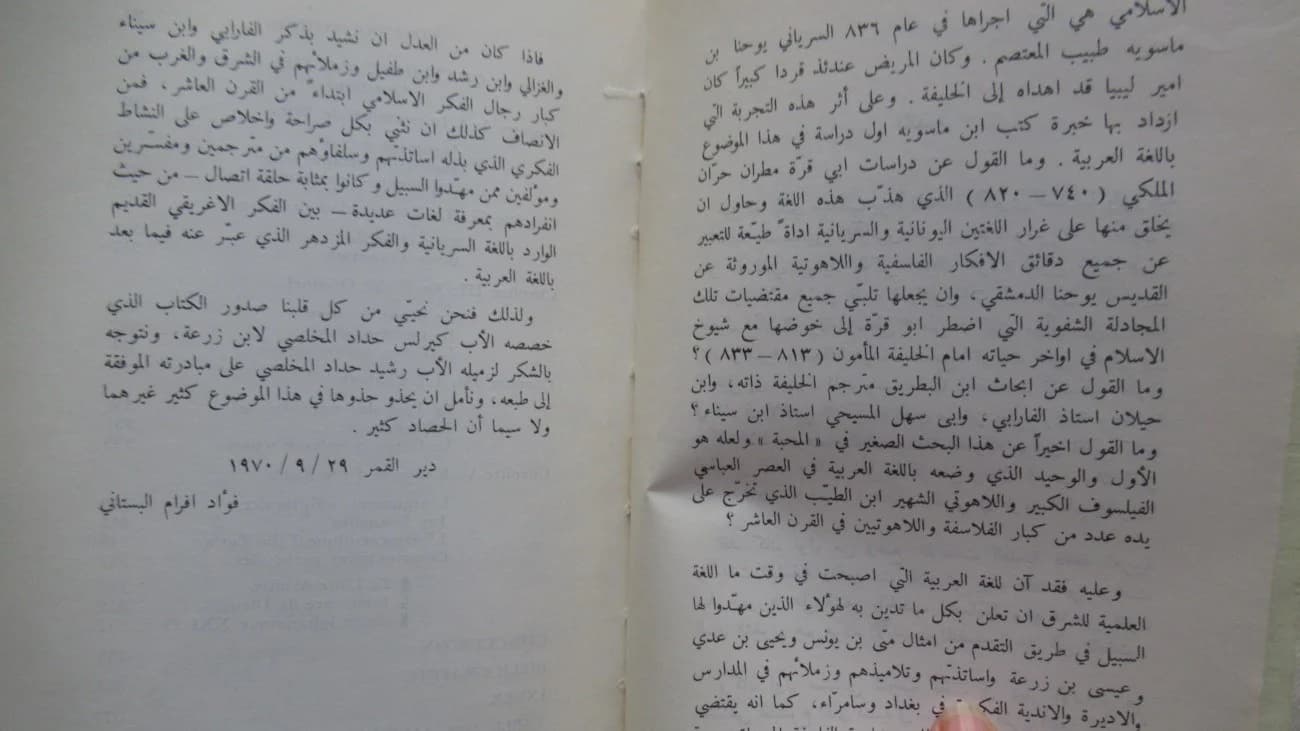 الاسلامي هي التي اجراها في عام ٨٣٦ السرياني يوحنا بن
ماسويه طبيب المعتصم . وكان المريض عندئذ قردا كبيراً كان
امير ليبيا قد اهداه إلى الخليفة . وعلى أثر هذه التجربة التي
ازداد بها خبرة كتب ابن ماسويه اول دراسة في هذا الموضوع
باللغة العربية . وما القول عن دراسات ابي قرّة مطران حرّان
الملكي ( ٧٤٠ – ٨٢٠ ) الذي هذّب هذه اللغة وحاول ان
يخلق منها على غرار اللغتين اليونانية والسريانية اداةً طيّعة للتعبير
عن جميع دقائق الافكار الفلسفية واللاهوتية الموروثة عن
القديس يوحنا الدمشقي، وان يجعلها تلبّي جميع مقتضيات تلك
المجادلة الشفوية التي اضطر ابو قرّة إلى خوضها مع شيوخ
الاسلام في اواخر حياته امام الخليفة المأمون ( ٨١٣ – ٨٣٣ ) ؟
وما القول عن ابحاث ابن البطريق مترجم الخليفة ذاته، وابن
حيلان استاذ الفارابي، وابى سهل المسيحي استاذ ابن سيناء ؟
وما القول اخيراً عن هذا البحث الصغير في « المحبة » ولعله هو
الأول والوحيد الذي وضعه باللغة العربية في العصر العباسي
الفيلسوف الكبير واللاهوتي الشهير ابن الطيّب الذي تخرّج على
يده عدد من كبار الفلاسفة واللاهوتيين في القرن العاشر ؟
وعليه فقد آن للغة العربية التي اصبحت في وقت ما اللغة
العلمية للشرق ان تعلن بكل ما تدين به لهؤلاء الذين مهّدوا لها
السبيل في طريق التقدم من امثال متّى بن يونس ويحيى بن عدي
وعيسى بن زرعة واساتذتهم وتلاميذهم وزملائهم في المدارس
والاديرة والاندية الفكرية في بغداد وسامرّاء، كما انه يقتضي
فاذا كان من العدل ان نشيد بذكر الفارابي وابن سيناء
والغزالي وابن رشد وابن طفيل وزملائهم في الشرق والغرب من
كبار رجال الفكر الاسلامي ابتداءً من القرن العاشر، فمن
الانصاف كذلك ان نثني بكل صراحة واخلاص على النشاط
الفكري الذي بذله اساتذتهم وسلفاؤهم من مترجمين ومفسّرين
ومؤلفين ممن مهّدوا السبيل وكانوا بمثابة حلقة اتصال – من حيث
انفرادهم بمعرفة لغات عديدة – بين الفكر الاغريقي القديم
الوارد باللغة السريانية والفكر المزدهر الذي عبّر عنه فيما بعد
باللغة العربية .
ولذلك فنحن نحيّي من كل قلبنا صدور الكتاب الذي
خصصه الأب كيرلس حداد المخلصي لابن زرعة، ونتوجه
بالشكر لزميله الأب رشيد حداد المخلصي على مبادرته الموفقة
إلى طبعه، ونأمل ان يحذو حذوها في هذا الموضوع كثير غيرهما
ولا سيما أن الحصاد كثير .
دير القمر ٢٩ / ٩ / ١٩٧٠
فؤاد افرام البستاني